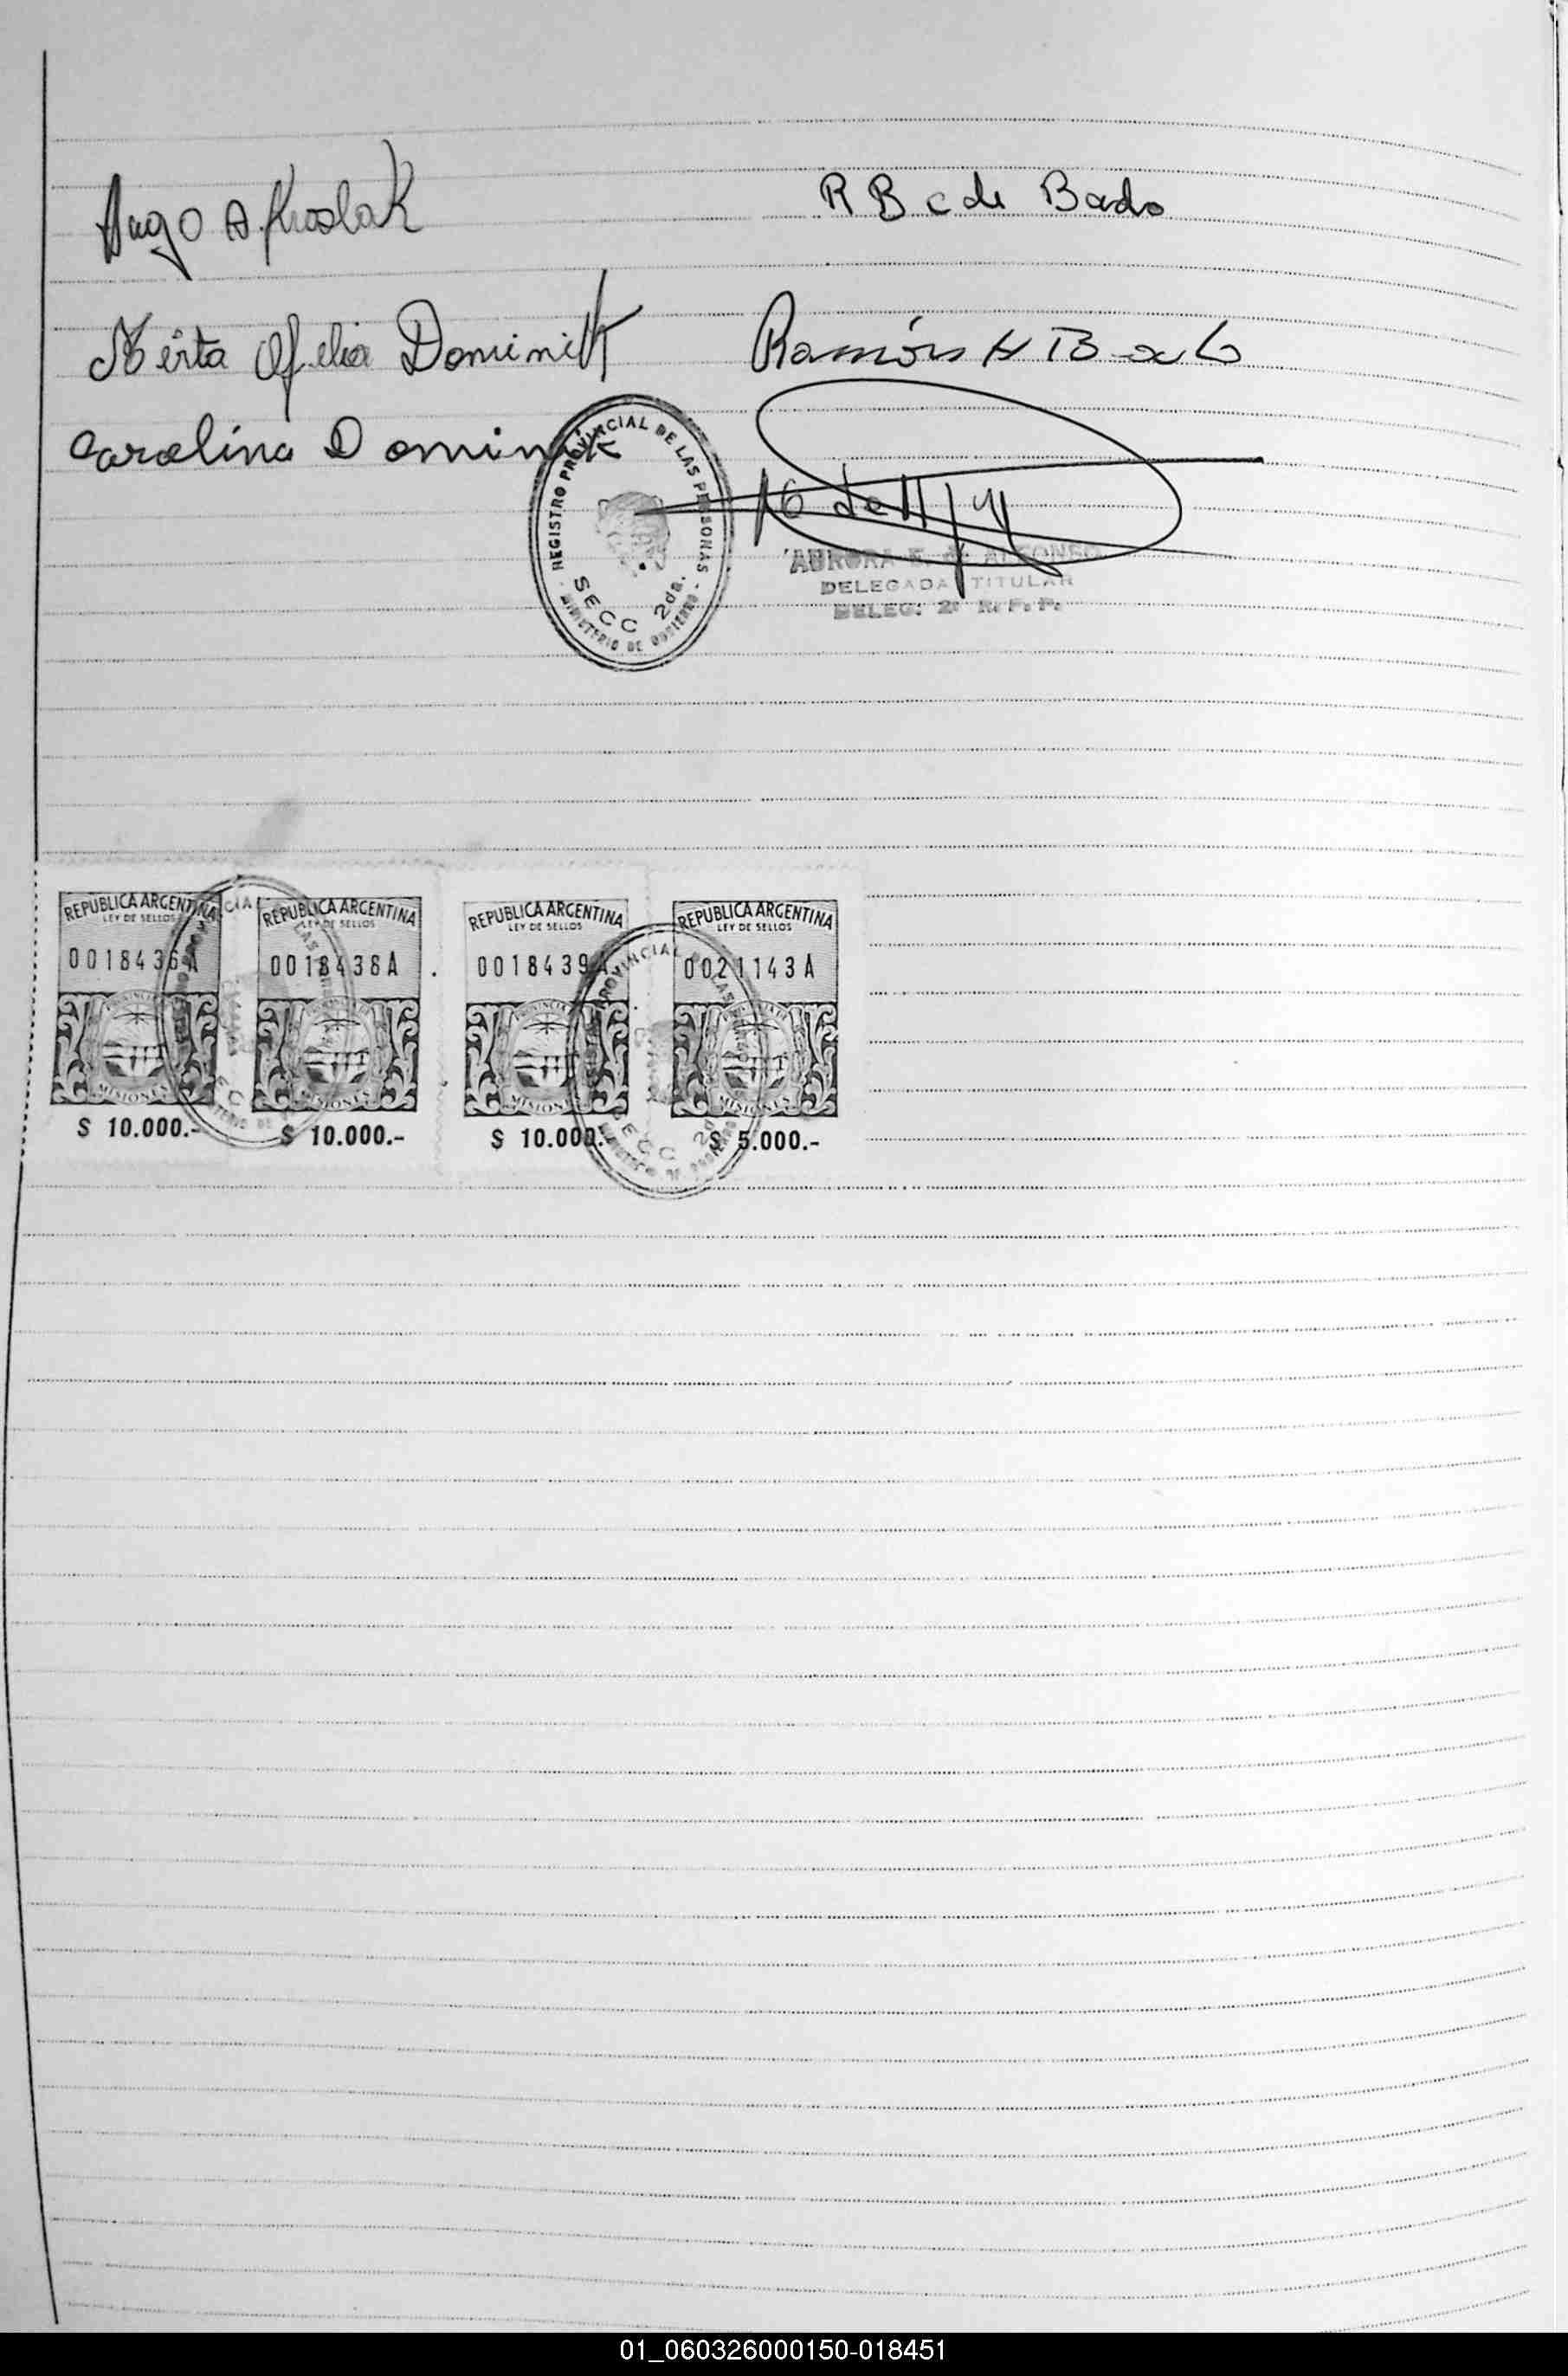 Hugo A
R B c de Bado
Mirta Ofelia Dominik
Ramón H Bado
Carolina Dominik
REGISTRO PROVINCIAL DE LAS PERSONAS
SECC 2da.
MINISTERIO DE GOBIERNO
AURORA E. de ALFONSO
DELEGADA TITULAR
DELEG. 2ª R. P. P.
REPUBLICA ARGENTINA
LEY DE SELLOS
0018436A
MISIONES
$ 10.000.-
REPUBLICA ARGENTINA
LEY DE SELLOS
0018438A
MISIONES
$ 10.000.-
REPUBLICA ARGENTINA
LEY DE SELLOS
0018439A
MISIONES
$ 10.000.-
REPUBLICA ARGENTINA
LEY DE SELLOS
0021143A
MISIONES
$ 5.000.-
01_060326000150-018451